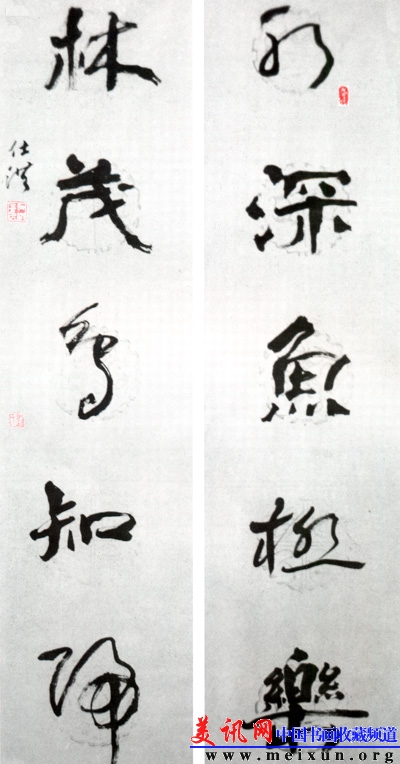 水深魚極樂
林茂鳥知歸
仕洪
美讯网 中国书画收藏频道
www.meixun.org